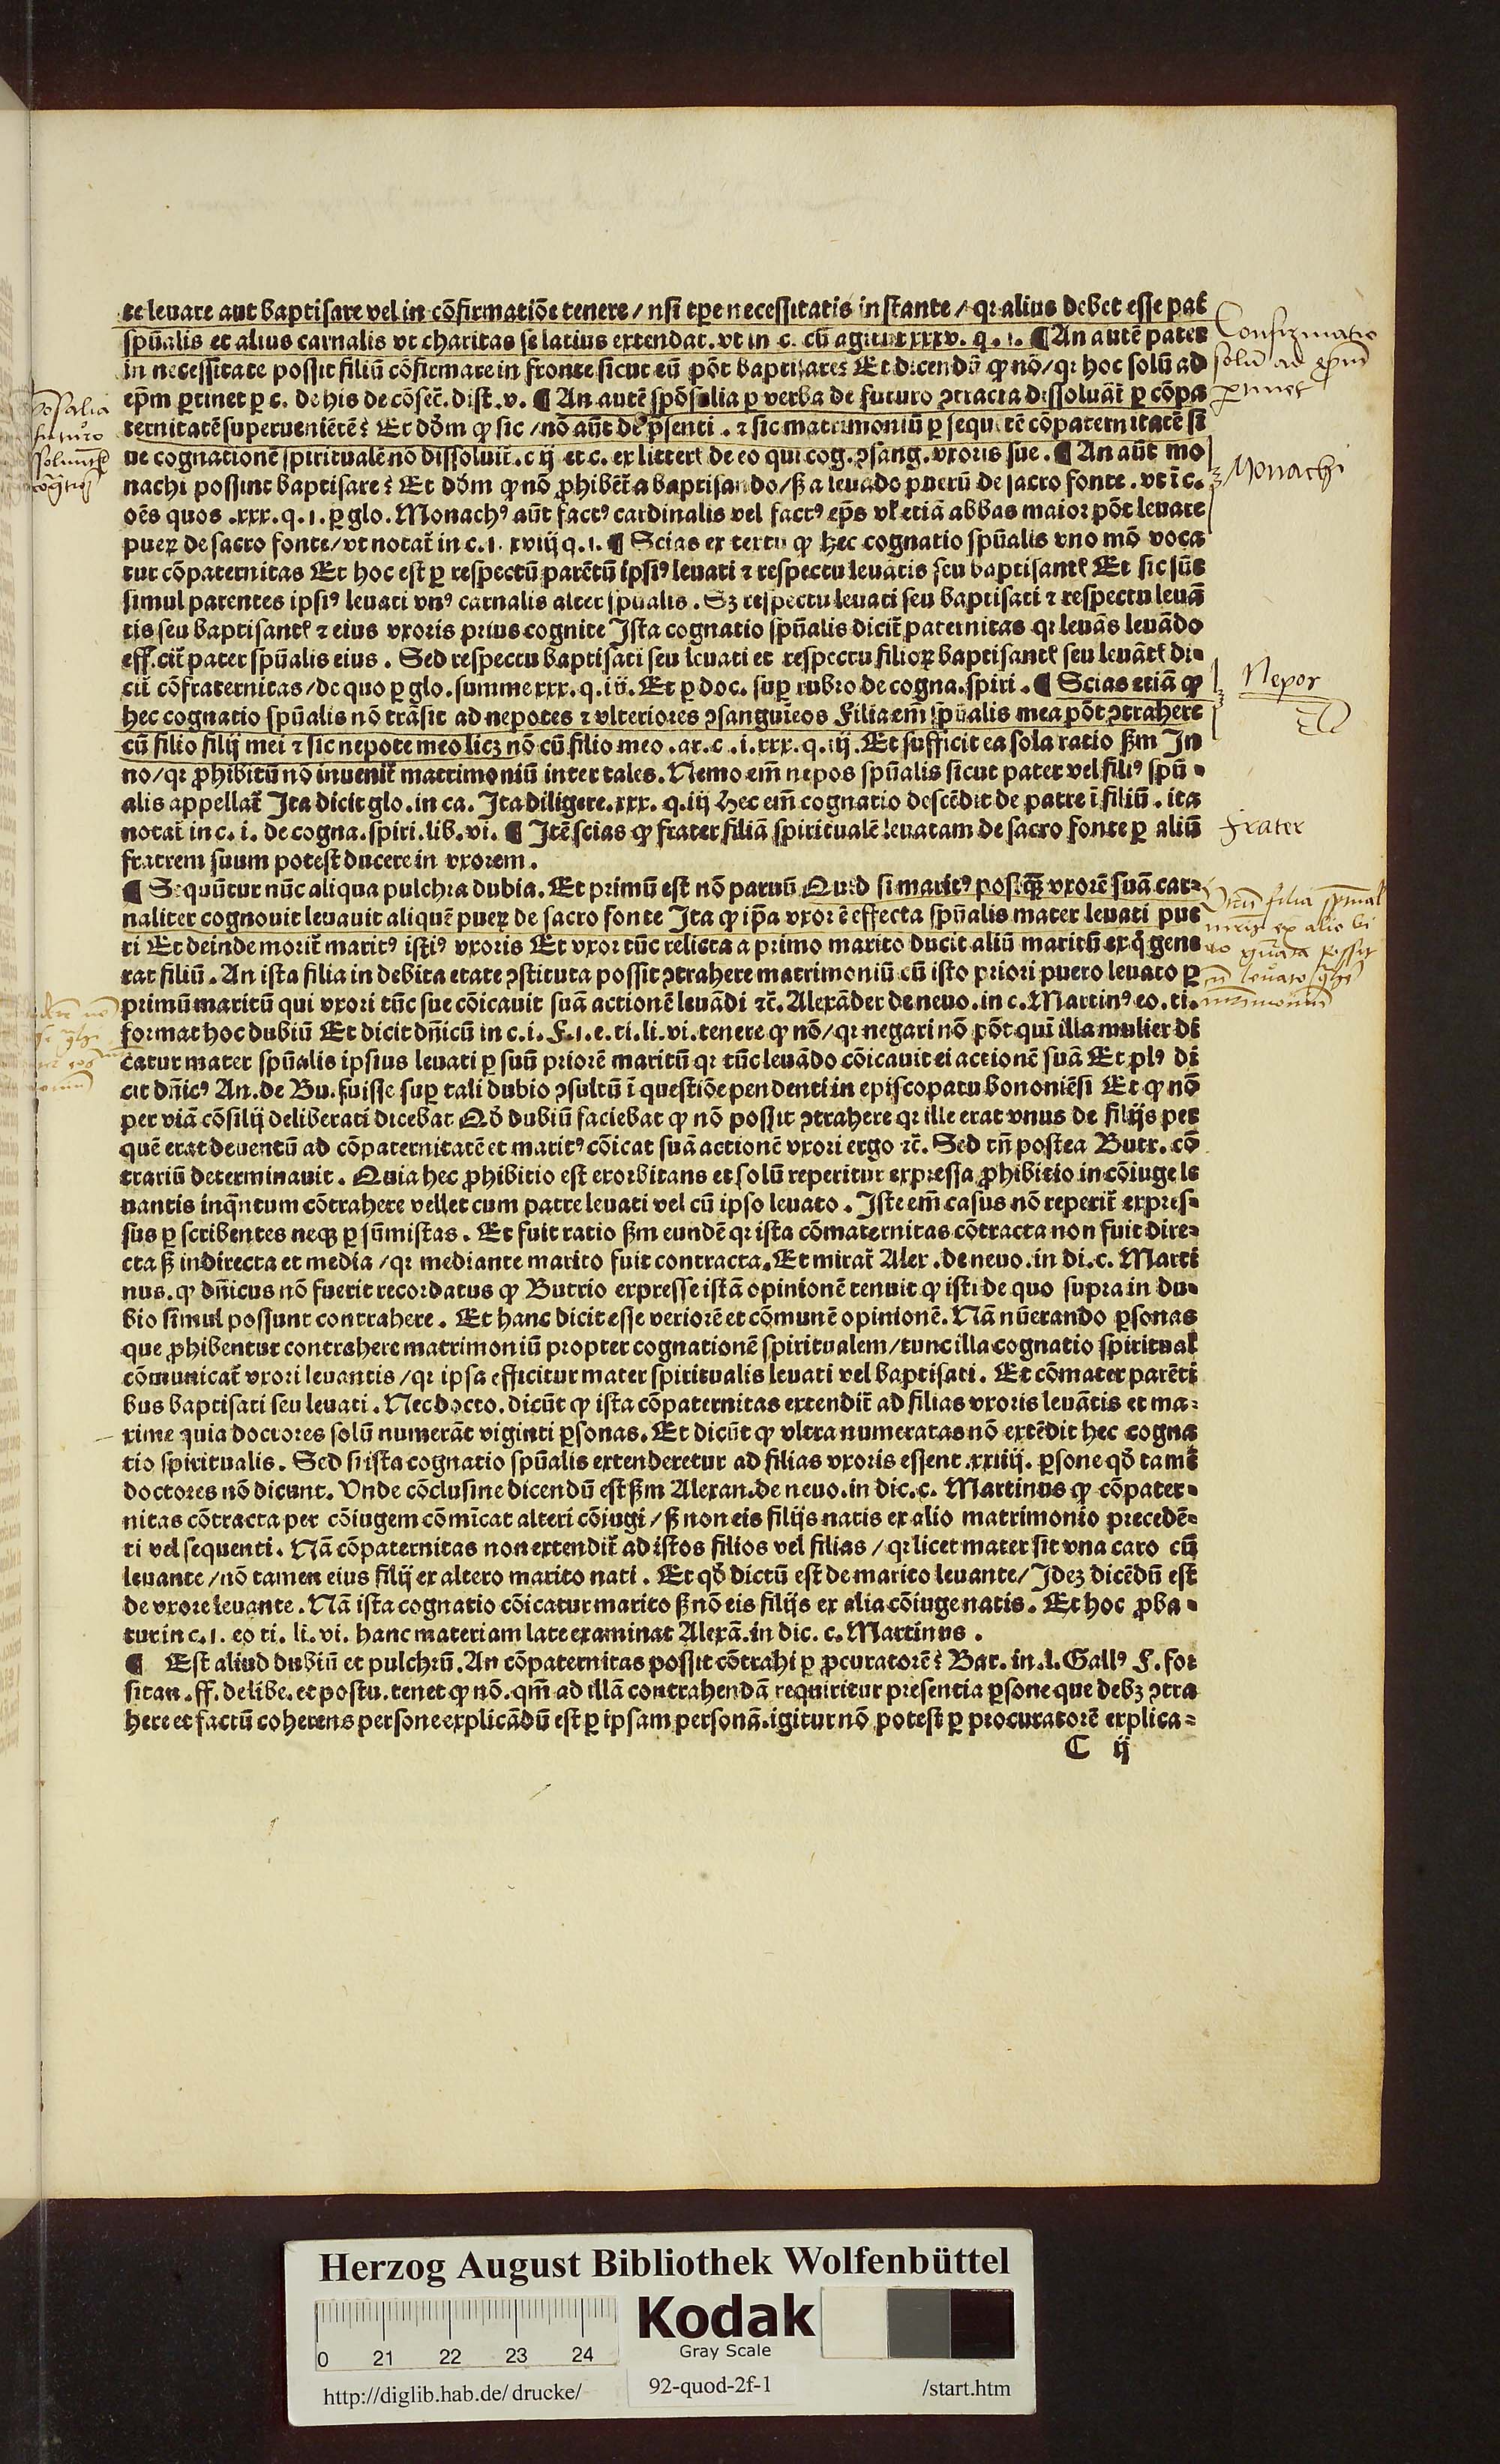 te leuare aut baptisare vel in cōfirmatiōe tenere / nsi tpe necessitatis instante / qꝛ alius debet esse pat᷑
spūalis et alius carnalis vt charitas se latius extendat. vt in c. cū agitur xxxv. q. 1. ¶ An autē pater
in necessitate possit filiū cōfirmare in fronte sicut eū pōt baptisare? Et dicendū ꝙ nō / qꝛ hoc solū ad
epm̄ ꝑtinet ꝑ c. de his de cōsec̄. dist. v. ¶ An autē spōsalia ꝑ verba de futuro ꝯtracta dissoluāt᷑ ꝑ cōpa
ternitatē superuenientē? Et dōm ꝙ sic / nō aūt de p̄senti. ⁊ sic matrimoniū ꝑ sequētē cōpaternitatē si
ue cognationē spiritualē nō dissoluit᷑. c ij et c. ex litterꝭ de eo qui cog. ꝯsang. vxoris sue. ¶ An aūt mo
nachi possint baptisare? Et dōm ꝙ nō ꝓhibēt᷑ a baptisando / sꝫ a leuādo puerū de sacro fonte. vt ī c.
oēs quos .xxx. q. 1. ꝑ glo. Monachꝰ aūt factꝰ cardinalis vel factꝰ ep̄s vl̓ etiā abbas maior pōt leuare
pueꝝ de sacro fonte / vt notat᷑ in c. 1. xviij q. 1. ¶ Scias ex tertu ꝙ hec cognatio spūalis vno mō voca
tur cōpaternitas Et hoc est ꝑ respectū parētū ipsiꝰ leuati ⁊ respectu leuātis seu baptisantꝭ Et sic sūt
simul parentes ipsiꝰ leuati vnꝰ carnalis alter spūalis. Sꝫ respectu leuati seu baptisati ⁊ respectu leuā
tis seu baptisantꝭ ⁊ eius vxoris prius cognite Ista cognatio spūalis dicit᷑ paternitas qꝛ leuās leuādo
efficit᷑ pater spūalis eius. Sed respectu baptisati seu leuati et respectu filioꝝ baptisantꝭ seu leuātꝭ di⸗
cit᷑ cōfraternitas / de quo ꝑ glo. summe xxx. q. iij. Et ꝑ doc. suꝑ rubro de cogna. spiri. ¶ Scias etiā ꝙ
hec cognatio spūalis nō trāsit ad nepotes ⁊ vlteriores ꝯsanguīeos Filia em̄ spūalis mea pōt ꝯtrahere
cū filio filij mei ⁊ sic nepote meo licꝫ nō cū filio meo. ar. c. i. xxx. q. iij. Et sufficit ea sola ratio ẜm In
no / qꝛ ꝓhibitū nō inuenit᷑ matrimoniū inter tales. Nemo em̄ nepos spūalis sicut pater vel filiꝰ spū⸗
alis appellat᷑ Ita dicit glo. in ca. Ita diligere. xxx. q. iij Hec em̄ cognatio descēdit de patre ī filiū. ita
notat᷑ in c. i. de cogna. spiri. lib. vi. ¶ Itē scias ꝙ frater filiā spiritualē leuatam de sacro fonte ꝑ aliū
fratrem suum potest ducere in vxorem.
¶ Sequūtur nūc aliqua pulchra dubia. Et primū est nō paruū Quid si maritꝰ postqꝫ vxorē suā car⸗
naliter cognouit leuauit aliquē pueꝝ de sacro fonte Ita ꝙ ip̄a vxor ē effecta spūalis mater leuati pue
ri Et deinde morit᷑ maritꝰ istiꝰ vxoris Et vxor tūc relicta a primo marito ducit aliū maritū ex q̄ gene
rat filiū. An ista filia in debita etate ꝯstituta possit ꝯtrahere matrimoniū cū isto priori puero leuato ꝑ
primū maritū qui vxori tūc sue cōicauit suā actionē leuādi ⁊c̄. Alexāder de neuo. in c. Martinꝰ eo. ti.
format hoc dubiū Et dicit dn̄icū in c. i. §. 1. e. ti. li. vi. tenere ꝙ nō / qꝛ negari nō pōt quī illa mulier di
catur mater spūalis ipsius leuati ꝑ suū priorē maritū qꝛ tūc leuādo cōicauit ei actionē suā Et plꝰ di
cit dn̄icꝰ An. de Bu. fuisse suꝑ tali dubio ꝯsultū ī questiōe pendenti in episcopatu bononiēsi Et ꝙ nō
per viā cōsilij deliberati dicebat Qđ dubiū faciebat ꝙ nō possit ꝯtrahere qꝛ ille erat vnus de filijs per
quē erat deuentū ad cōpaternitatē et maritꝰ cōicat suā actionē vxori ergo ⁊c̄. Sed tn̄ postea Butr. cō
trariū determinauit. Quia hec ꝓhibitio est exorbitans et solū reperitur expressa ꝓhibitio in cōiuge le
uantis inq̄ntum cōtrahere vellet cum patre leuati vel cū ipso leuato. Iste em̄ casus nō reperit᷑ expres⸗
sus ꝑ scribentes neqꝫ ꝑ sūmistas. Et fuit ratio ẜm eundē qꝛ ista cōmaternitas cōtracta non fuit dire⸗
cta sꝫ indirecta et media / qꝛ mediante marito fuit contracta. Et mirat᷑ Alex. de neuo. in di. c. Marti
nus. ꝙ dn̄icus nō fuerit recordatus ꝙ Butrio expresse istā opinionē tenuit ꝙ isti de quo supra in du⸗
bio simul possunt contrahere. Et hanc dicit esse veriorē et cōmunē opinionē. Nā nūerando ꝑsonas
que ꝓhibentur contrahere matrimoniū propter cognationē spiritualem / tunc illa cognatio spiritualꝭ
cōmunicat᷑ vxori leuantis / qꝛ ipsa efficitur mater spiritualis leuati vel baptisati. Et cōmater parēti
bus baptisati seu leuati. Nec docto. dicūt ꝙ ista cōpaternitas extendit᷑ ad filias vxoris leuātis et ma⸗
xime quia doctores solū numerāt viginti ꝑsonas. Et dicūt ꝙ vltra numeratas nō extēdit hec cogna
tio spiritualis. Sed si ista cognatio spūalis extenderetur ad filias vxoris essent .xxiiij. ꝑsone qđ tamē
doctores nō dicunt. Vnde cōclusine dicendū est ẜm Alexan. de neuo. in dic. c. Martinus ꝙ cōpater⸗
nitas cōtracta per cōiugem cōmīcat alteri cōiugi / sꝫ non eis filijs natis ex alio matrimonio precedē⸗
ti vel sequenti. Nā cōpaternitas non extendit᷑ ad istos filios vel filias / qꝛ licet mater sit vna caro cū
leuante / nō tamen eius filij ex altero marito nati. Et qđ dictū est de marito leuante / Ideꝫ dicēdū est
de vxore leuante. Nā ista cognatio cōicatur marito sꝫ nō eis filijs ex alia cōiuge natis. Et hoc ꝓba⸗
tur in c. 1. eo ti. li. vi. hanc materiam late examinat Alexā. in dic. c. Martinus.
¶ Est aliud dubiū et pulchrū. An cōpaternitas possit cōtrahi ꝑ ꝓcuratorē? Bar. in. l. Gallꝰ §. for
sitan. ff. de libe. et postu. tenet ꝙ nō. qm̄ ad illā contrahendā requiritur presentia ꝑsone que debꝫ ꝯtra
here et factū coherens persone explicādū est ꝑ ipsam personā. igitur nō potest ꝑ procuratorē explica⸗
C ij
Confirmatio
solū ad ep̄m
ꝑtinet
Monachi
Nepos
Frater
Herzog August Bibliothek Wolfenbüttel
Kodak
Gray Scale
0 21 22 23 24
http://diglib.hab.de/drucke/
92-quod-2f-1
/start.htm